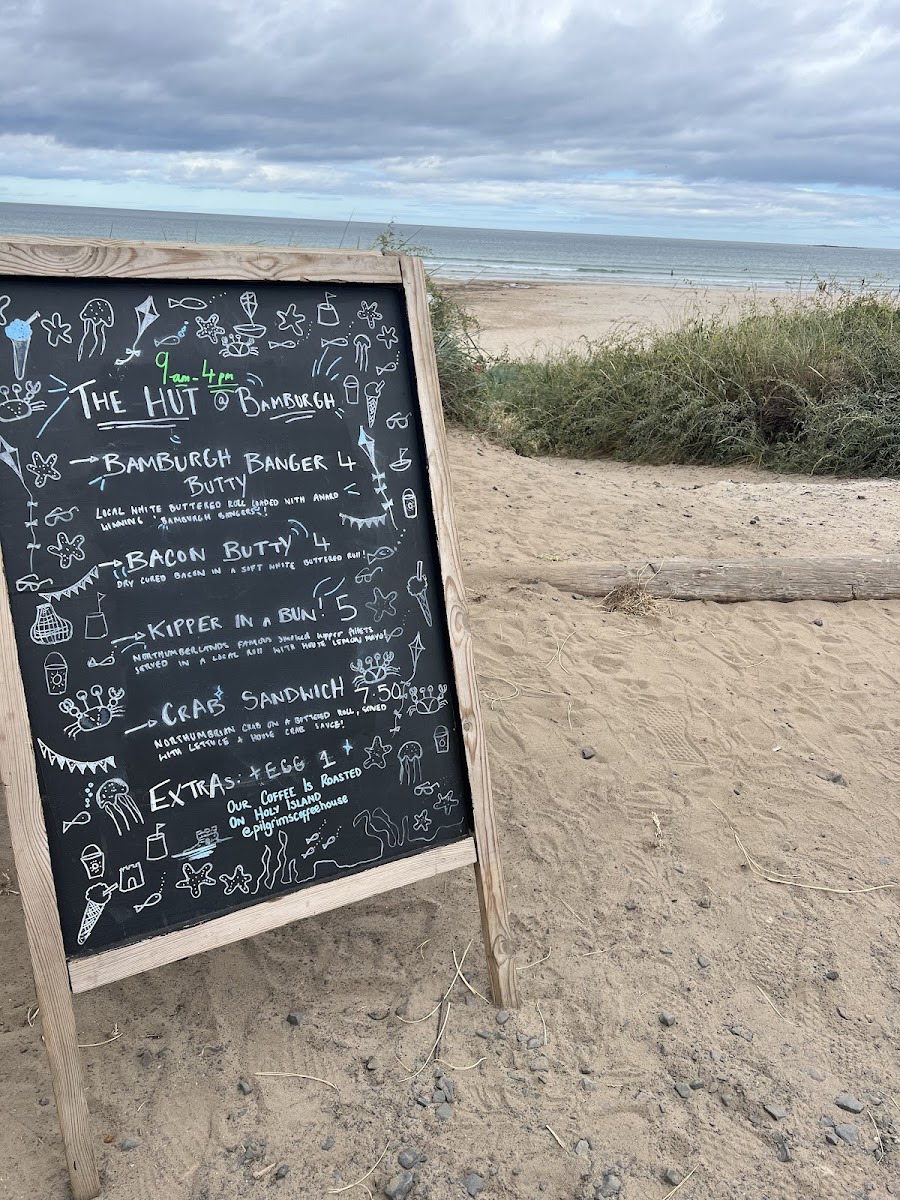 9am-4pm
THE HUT @ BAMBURGH
BAMBURGH BANGER 4
BUTTY
LOCAL WHITE BUTTERED ROLL LOADED WITH AWARD
WINNING 'BAMBURGH BANGERS'!
BACON BUTTY 4
DRY CURED BACON IN A SOFT WHITE BUTTERED ROLL!
KIPPER IN A BUN! 5
NORTHUMBERLANDS FAMOUS SMOKED KIPPER FILLETS
SERVED IN A LOCAL ROLL WITH HOUSE LEMON MAYO!
CRAB SANDWICH 7.50
NORTHUMBRIAN CRAB ON A BUTTERED ROLL, SERVED
WITH LETTUCE + HOUSE CRAB SAUCE!
EXTRAS: +EGG 1
OUR COFFEE IS ROASTED
ON HOLY ISLAND
@pilgrimscoffeehouse